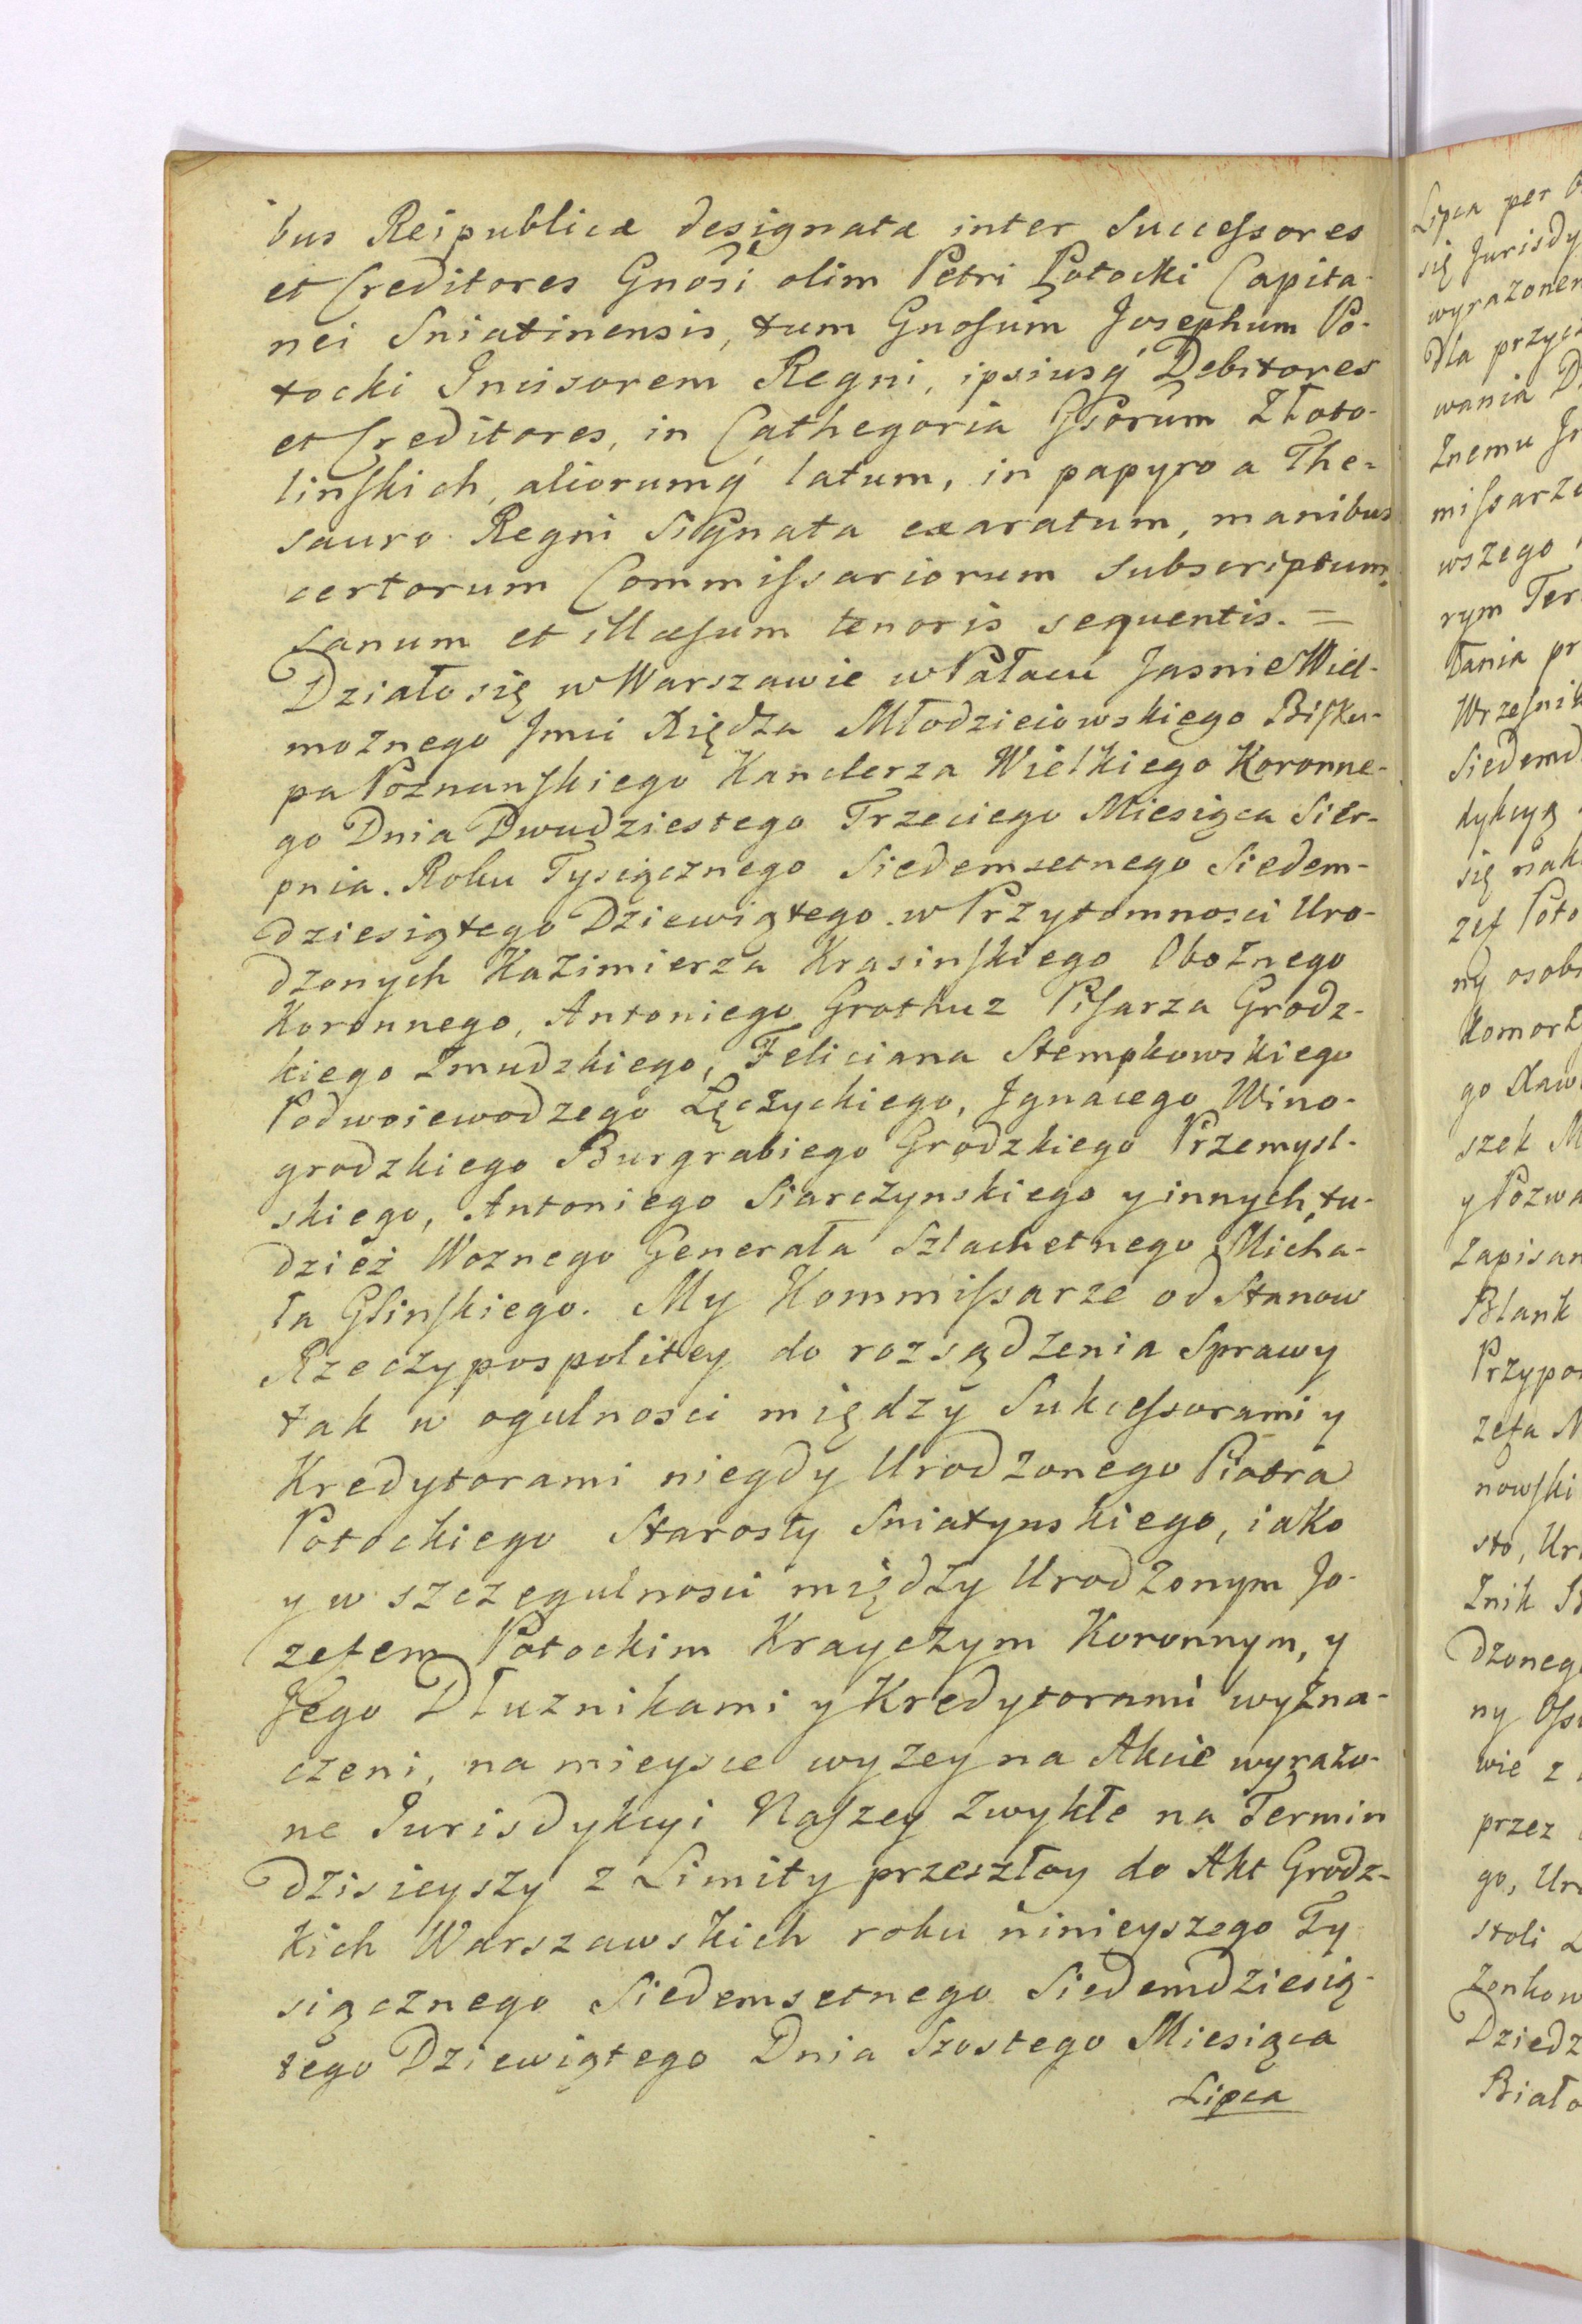 bus Reipublicæ designatæ inter Successores
et Creditores Gnosi olim Petri Potocki Capita-
nei Sniatinensis, tum Gnosum Josephum Po-
tocki Incisorem Regni, ipsiusq́ Debitores
et Creditores, in Cathegoria Gsorum Złoto-
linskich, aliorumq́ latum, in papyro a The-
sauro Regni Signata exaratum, manibus
certorum Commissariorum Subscriptum
Sanum et illæsum tenoris sequentis. =
Działo się w Warszawie w Pałacu Jasnie Wiel-
moznego Jmci Xiędza Młodzieiowskiego Bisku-
pa Poznanskiego Kanclerza Wielkiego Koronne-
go Dnia Dwudziestego Trzeciego Miesiąca Sier-
pnia. Roku Tysiącznego Siedemsetnego Siedem-
dziesiątego Dziewiątego w Przytomnosci Uro-
dzonych Kazimierza Krasinskiego Oboznego
Koronnego, Antoniego Grothuz Pisarza Grodz-
kiego Zmudzkiego, Feliciana Stempkowskiego
Podwoiewodzego Lęczyckiego, Jgnacego Wino-
grodzkiego Burgrabiego Grodzkiego Przemysl-
skiego, Antoniego Siarczynskiego y innych tu-
dzież Woznego Generała Szlachetnego Micha-
ła Glinskiego. My Kommissarze od Stanow
Rzeczypospolitey do rozsądzenia Sprawy
tak w ogulnosci między Sukcessorami y
Kredytorami niegdy Urodzonego Piotra
Potockiego Starosty Sniatynskiego, iako
y w szczegulnosci między Urodzonym Jo-
zefem Potockim Krayczym Koronnym, y
Jego Dłuznikami y Kredytorami wyzna-
czeni, na mieysce wyzey na Akcie wyrazo-
ne Jurisdykcyi Naszey zwykłe na Termin
dzisieyszy z Limity przeszłey do Akt Grodz-
kich Warszawskich roku ninieyszego Ty
siącznego Siedemsetnego Siedemdziesią-
tego Dziewiątego Dnia Szostego Miesiąca
Lipca
Lipca per
się Jurisdy
wyrazonem
dla przycz
wania
znemu
missarz
wszego
rym Ter
łania pr
Wrzesnik
Siedemd
dykcyą
się nak
zef Poto
ny osob
Komorz
go Xaw
szek M
y Pozwa
zapisan
Blank
Przypo
zefa N
nowski
sto, Ur
znik
dzoneg
ny
wie z
przez
go, Ur
stoli
zonkow
Dziedz
Biało